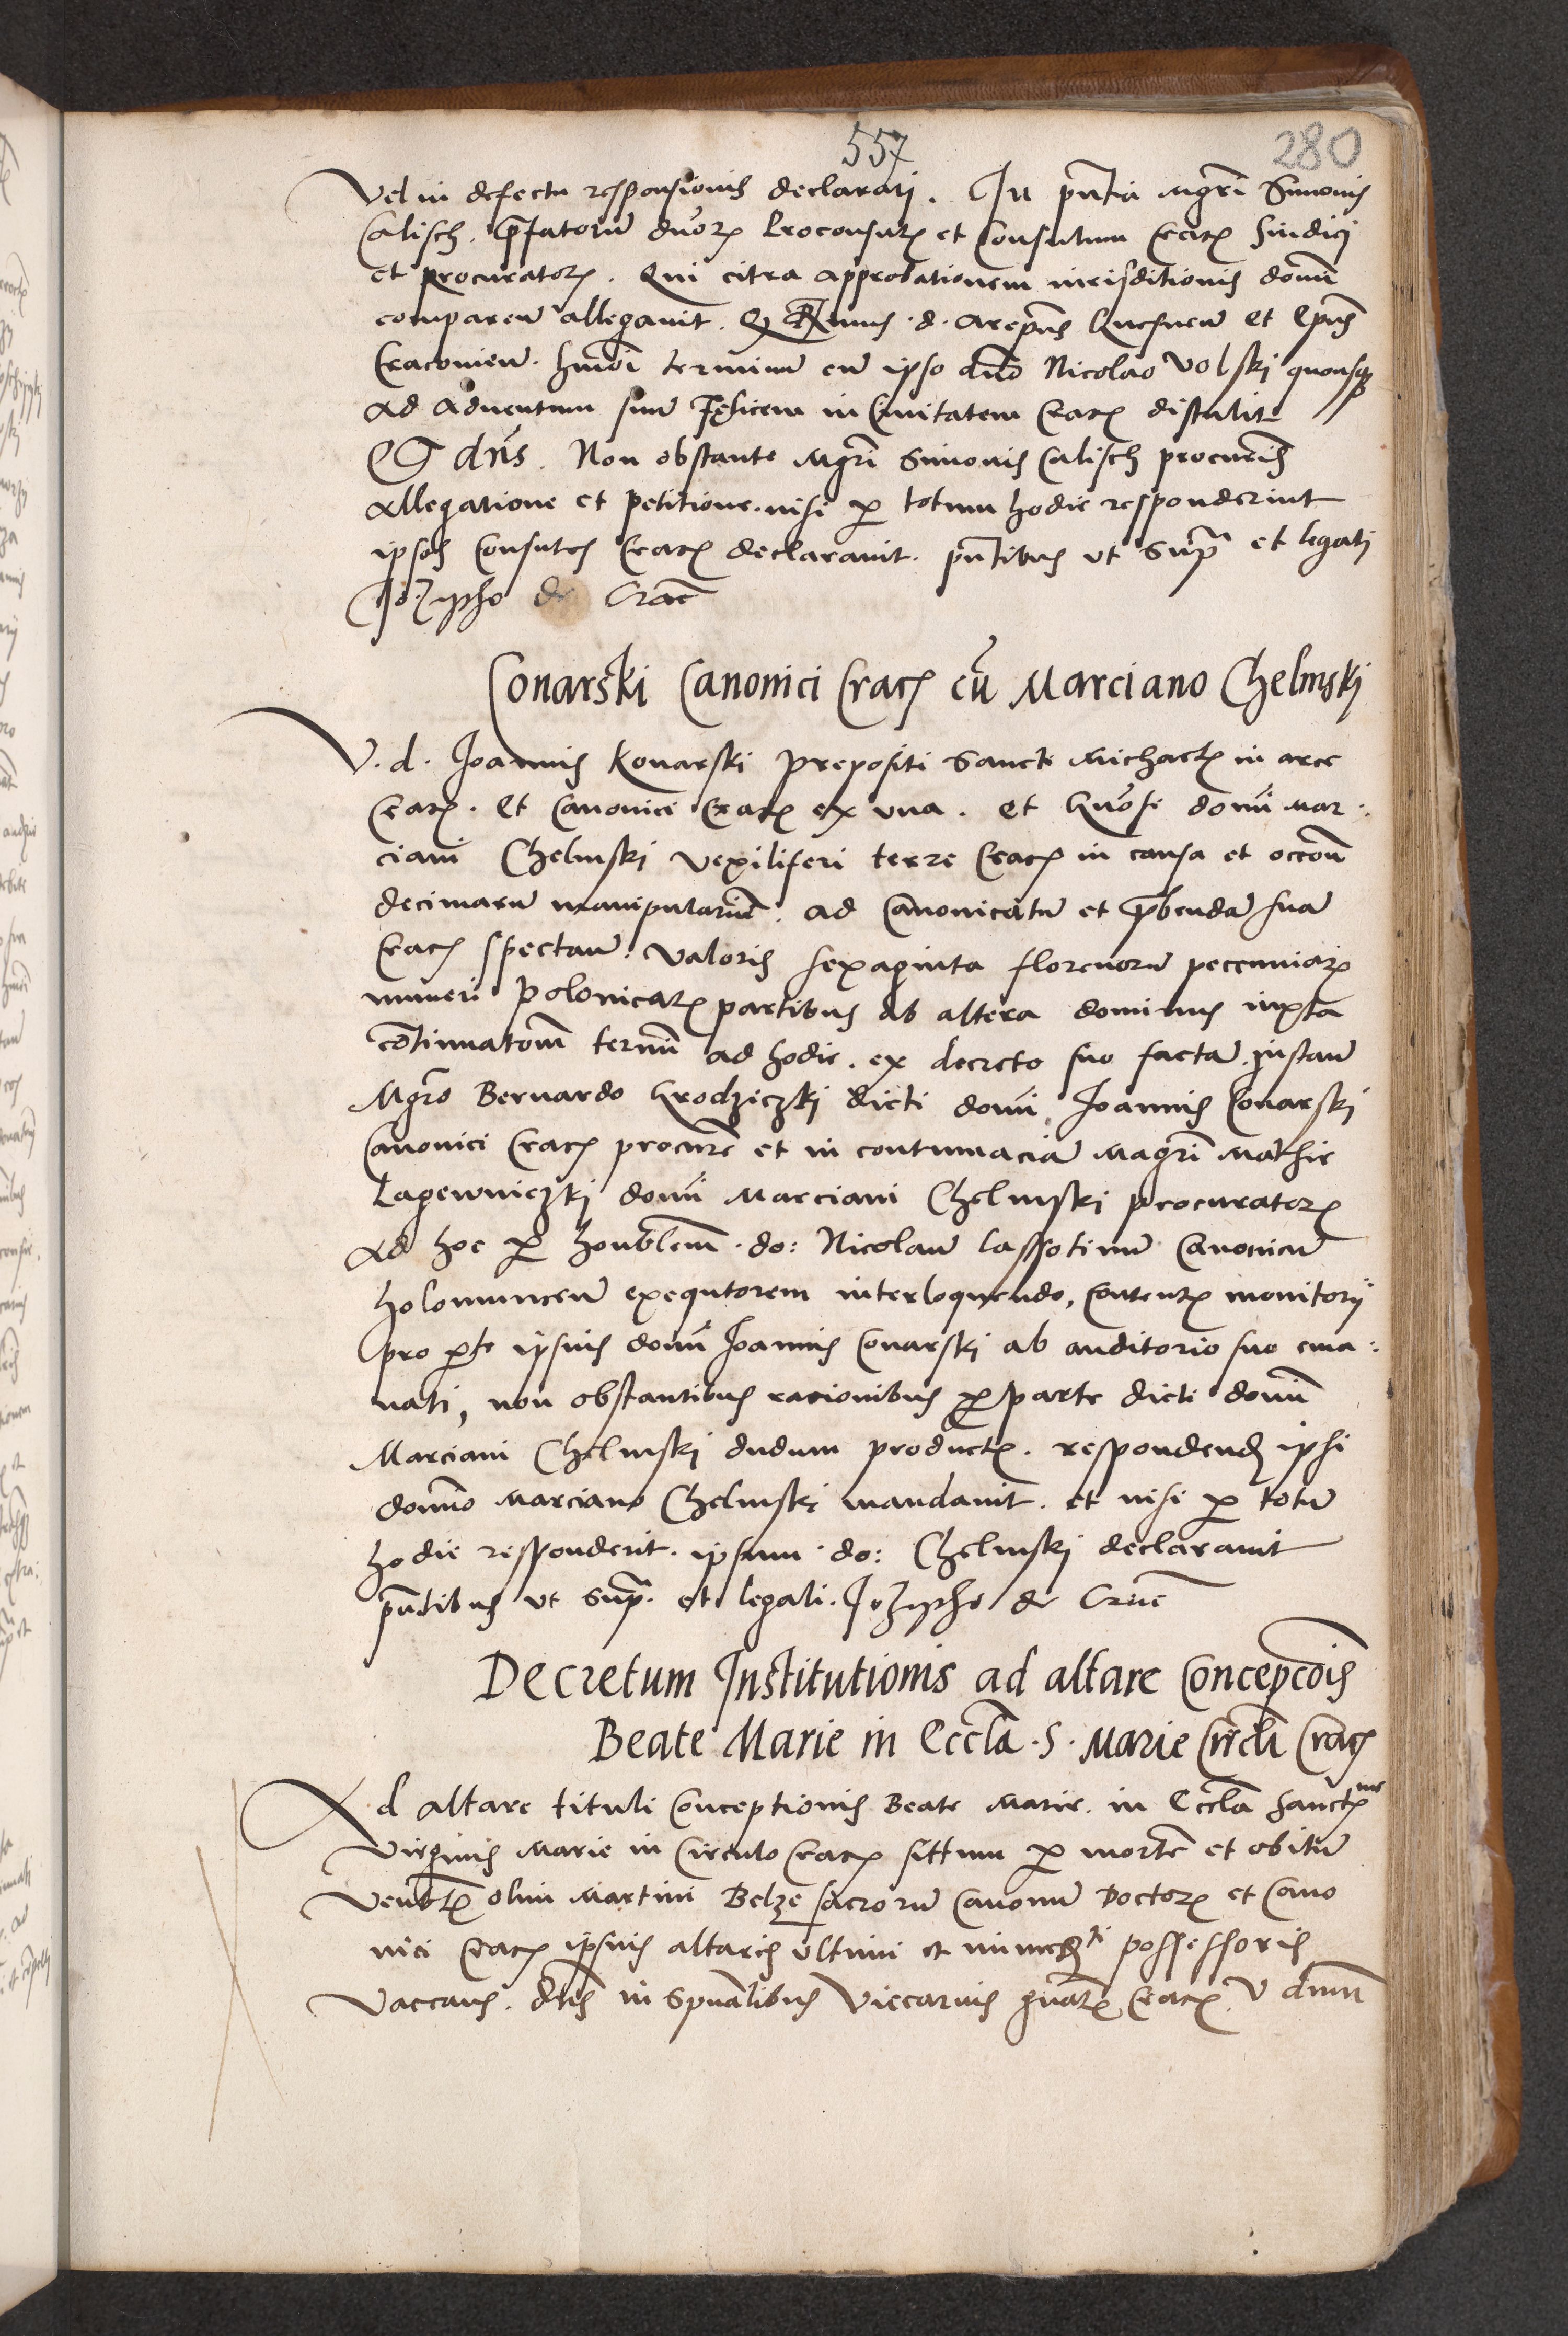 557
280
Vel in defectu responsionis declarari. In pñtia Mgri Simonis
Calisch. p̃fatorũ duorꝫ Proconsulꝫ et Consulum Cracꝫ Sindici
et Procuratorꝫ. Qui citra approbationem iurisditionis domi
comparen̄ allegavit. Qꝫ Rx̃mus. d. Arepũs Gnesnen̄ et Ep̃us
Cracovien̄. hmõi terminũ cũ ipso dño Nicolao Volski quousqꝫ
ad adventum suũ Felicem in Civitatem Cracꝫ distulit
Et dñs. Non obstante Mgri Simonis Calisch procuris̃
allegatione et petitione. nisi ꝑ totum hodie responderint
ipsos Consules Cracꝫ declaravit. pñtibus ut Supᵃ et legali
Jozepho de Crac̃
Conarski Canonici Cracꝫ cũ Marciano Chelmskj
V. d. Joannis Konarski Prepositi Sancti Michaelꝫ in arce
Cracꝫ. Et Canonici Cracꝫ ex una. Et Gnõsi domi Mar.
ciani Chelmski Vexiliferi terre Cracꝫ in causa et occõn
decimarũ manipulariũ. ad Canonicatũ et p̃bendã suã
Cracꝫ spectan̄. Valoris sexaginta florenorũ pecuniarꝫ
numeri Polonicarꝫ partibus ab altera dominus iuxta
cõtinuatõm termĩ ad hodie. ex decreto suo factã. instan̄
Mgro Bernardo Grodziczkj dicti domi Joannis Conarskj
Canonici Cracꝫ procurẽ et in contumaciã Magri Mathie
Lagewniczkj domi Marciani Chelmskj procuratorꝫ
ad hoc ꝑ honoblem. do: Nicolaũ Lassotinũ Canonicũ
holomuncen̄ exequtorem interloquendo, Contentꝫ monitorij
pro ꝑte ipsius domi Joannis Conarski ab auditorio suo ema:
nati, non obstantibus racionibus ꝑ parte dicti domi
Marciani Chelmskj dudum productꝫ. respondendꝫ ipsi
domno Marciano Chelmski mandavit. et nisi ꝑ totũ
hodie responderit. ipsum. do: Chelmskj declaravit
pñtibus ut Supᵃ. et legali. Jozepho de Crac̃
Decretum Institutionis ad altare Concepcõis
Beate Marie in Eccl̃a. S. Marie Circli Cracꝫ
Ad altare tituli Conceptionis Beate Marie. in Eccl̃a Sanctꝫme
Virginis Marie in Circulo Cracꝫ sittum ꝑ mortẽ et obitũ
Venblꝫ olim Martini Belze sacrorũ Canonũ Doctorꝫ et Cano
nici Cracꝫ ipsius altaris ultimi et immedꝫti possessoris
Vaccans. dñs in Spũalibus Viccarius gnalꝫ Cracꝫ. V dnm̃